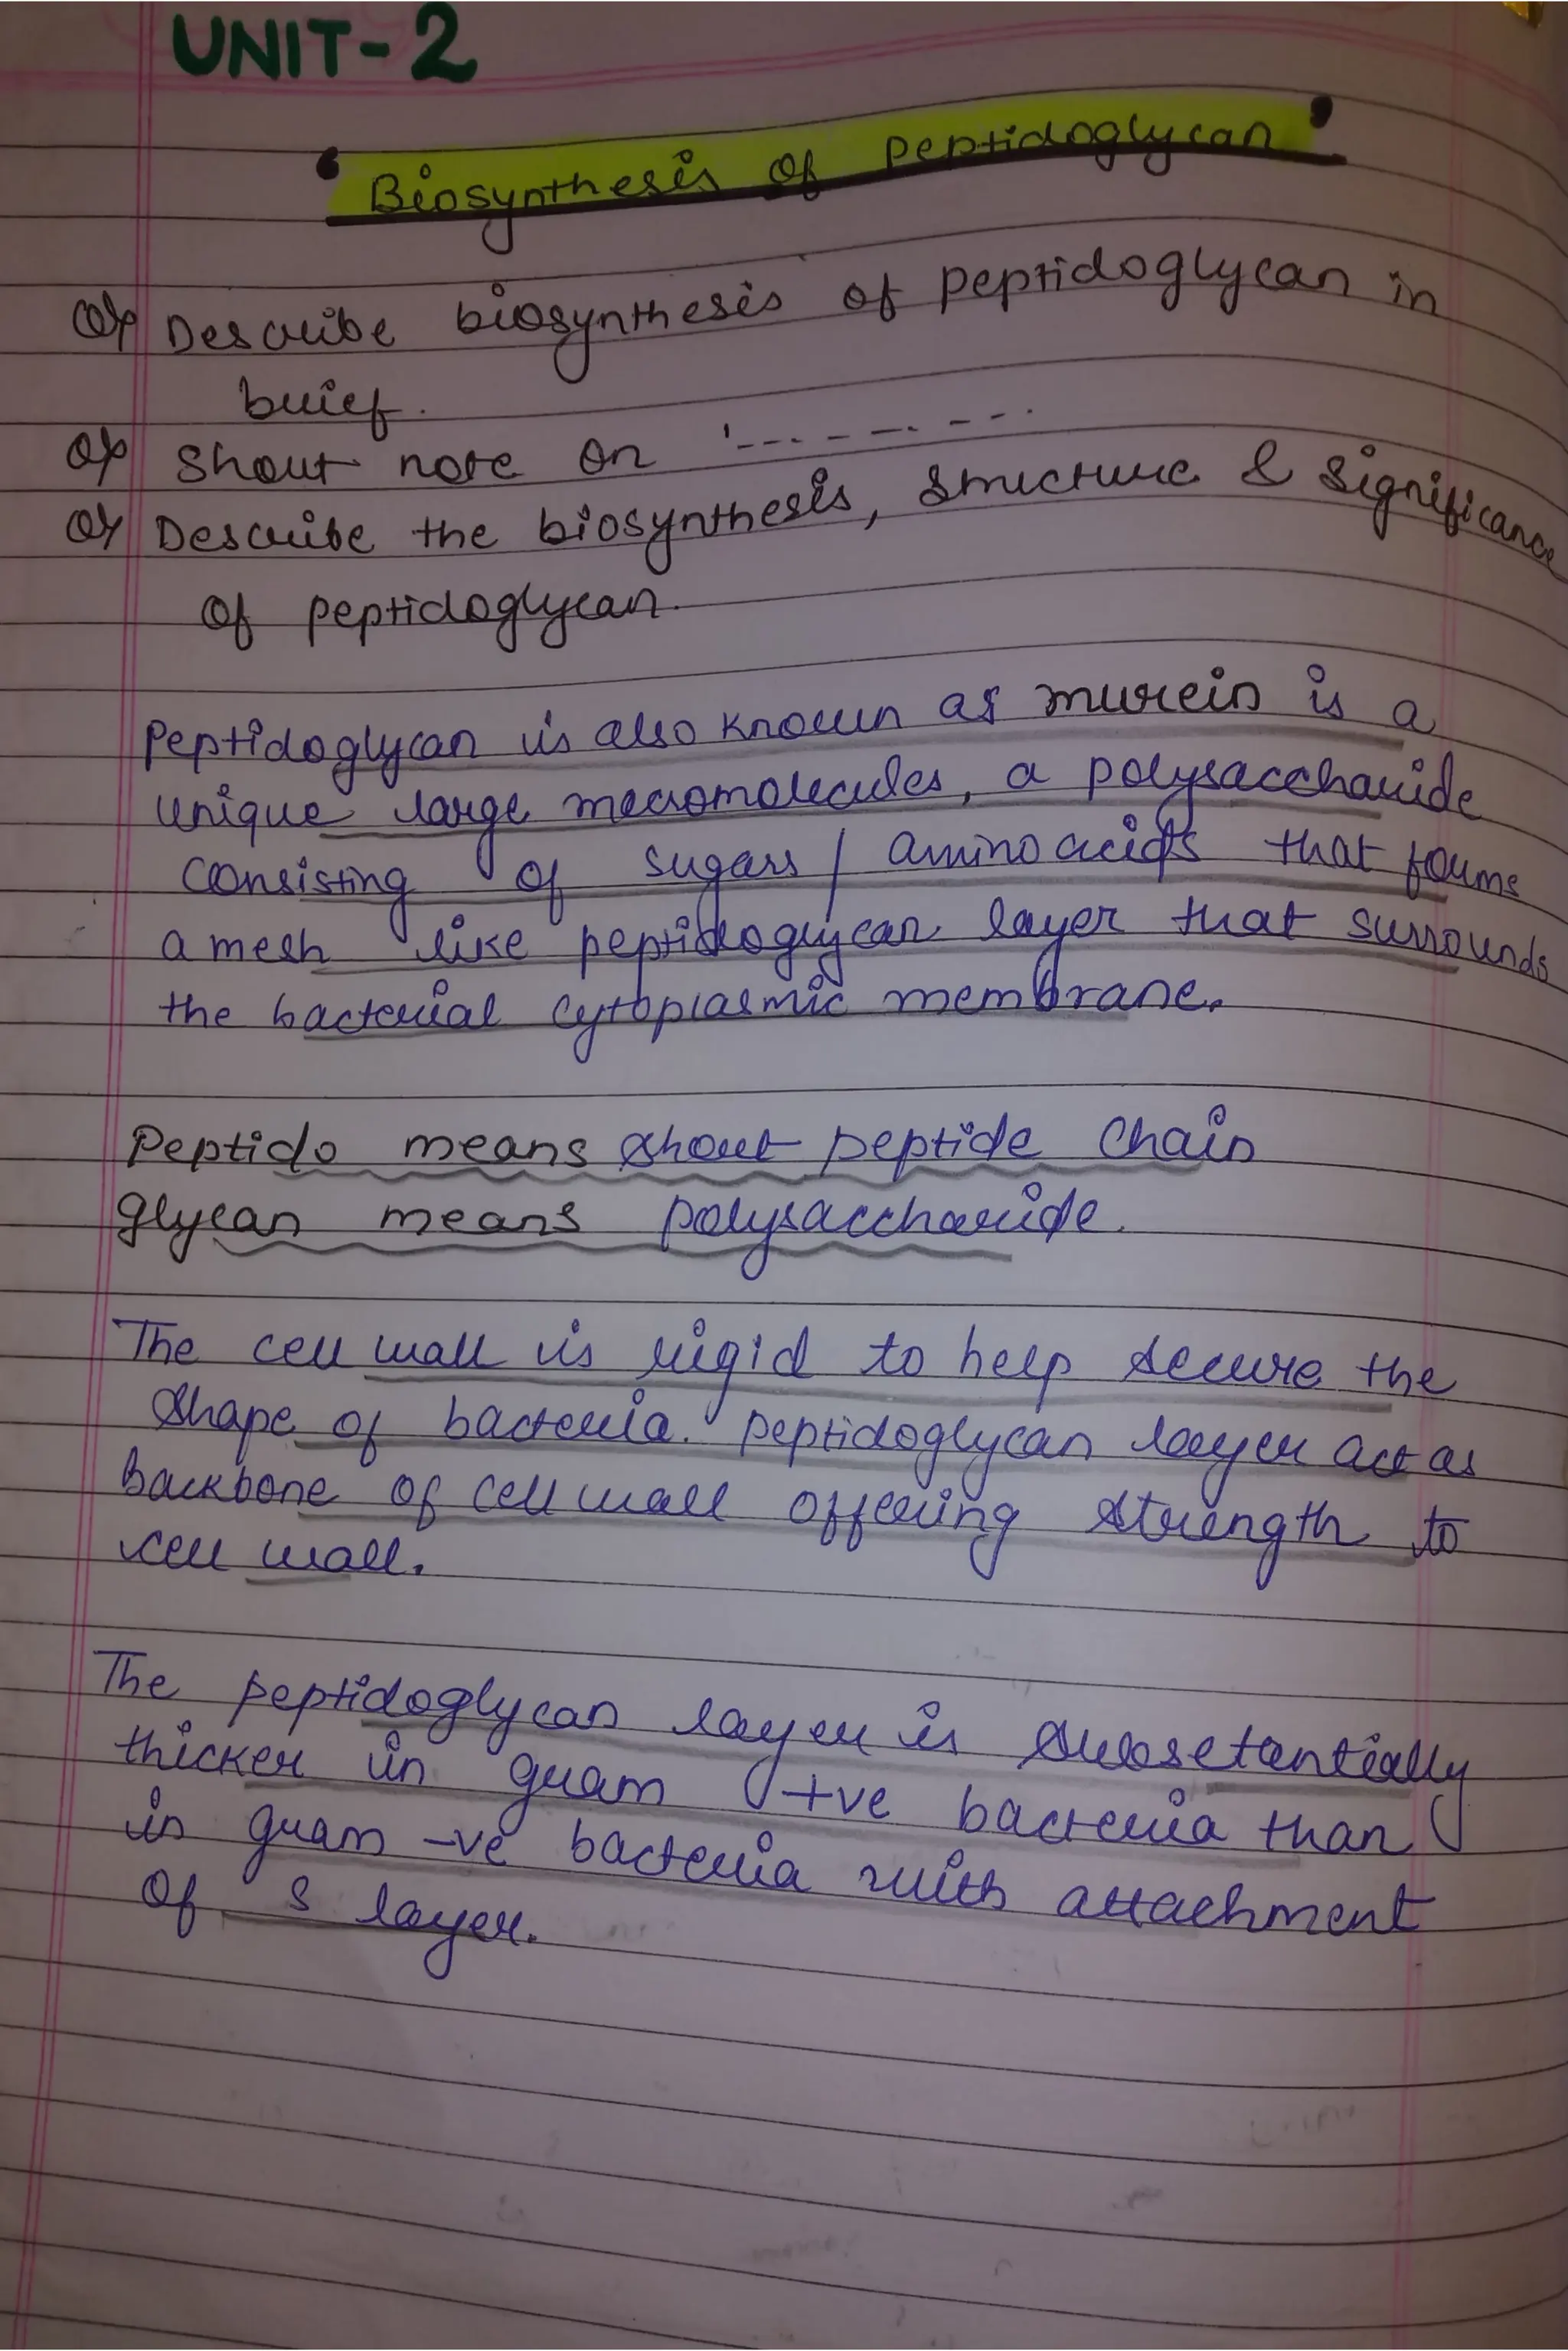 UNIT-2
' Biosynthesis of peptidoglycan '
Q) Describe biosynthesis of peptidoglycan in
brief.
Q) Short note on '---------.
Q) Describe the biosynthesis, structure & significance
of peptidoglycan.
Peptidoglycan is also known as murein is a
unique large macromolecules, a polysaccharide
consisting of sugars / amino acids that forms
a mesh like peptidoglycan layer that surrounds
the bacterial cytoplasmic membrane.
Peptido means short peptide chain
glycan means polysaccharide.
The cell wall is rigid to help secure the
shape of bacteria. peptidoglycan layer act as
backbone of cell wall offering strength to
cell wall.
The peptidoglycan layer is subsetantially
thicker in gram +ve bacteria than
in gram -ve bacteria with attachment
of s layer.